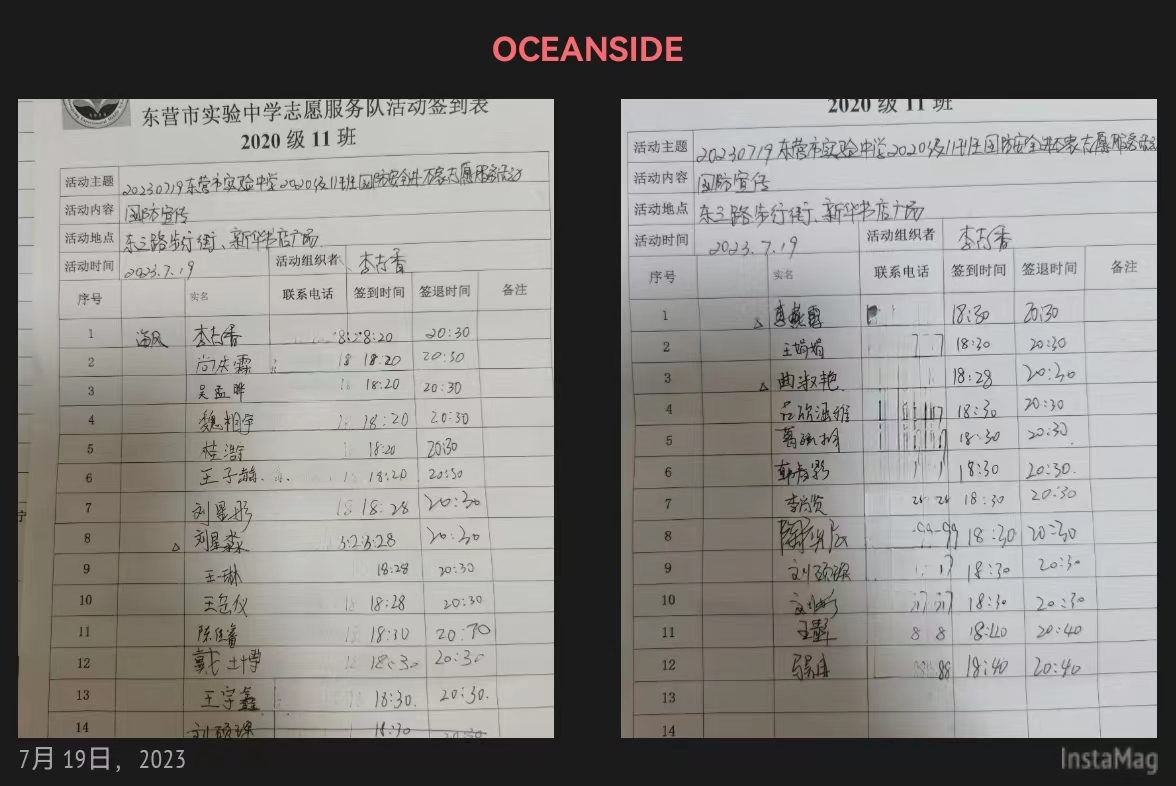 OCEANSIDE
东营市实验中学志愿服务队活动签到表
2020 级 11 班
活动主题 20230719东营市实验中学2020级11班国防安全进万家志愿服务活动
活动内容 国防宣传
活动地点 东三路步行街、新华书店广场
活动时间 2023.7.19 活动组织者 李志香
序号 实名 联系电话 签到时间 签退时间 备注
1 海风 李志香 18:20 20:30
2 尚庆霖 18:20 20:30
3 吴孟晔 18:20 20:30
4 魏翔宇 18:20 20:30
5 桂浩 18:20 20:30
6 王子 18:20 20:30
7 刘星彤 18:28 20:30
8 刘星淼 3:28 20:30
9 王琳 18:28 20:30
10 王仪 18:28 20:30
11 陈佳 18:30 20:30
12 戴士博 18:30 20:30
13 王宇鑫 18:30 20:30
14 刘硕 18:30 20:30
2020 级 11 班
活动主题 20230719东营市实验中学2020级11班国防安全进万家志愿服务活动
活动内容 国防宣传
活动地点 东三路步行街、新华书店广场
活动时间 2023.7.19 活动组织者 李志香
序号 实名 联系电话 签到时间 签退时间 备注
1 18:30 20:30
2 王娟娟 18:30 20:30
3 曲淑艳 18:28 20:30
4 吕欣涵 18:30 20:30
5 葛 18:30 20:30
6 韩 18:30 20:30
7 李尚贤 18:30 20:30
8 18:30 20:30
9 刘硕 18:30 20:30
10 刘 18:30 20:30
11 王 8 8 18:40 20:40
12 18:40 20:40
13
14
7月 19日，2023
InstaMag